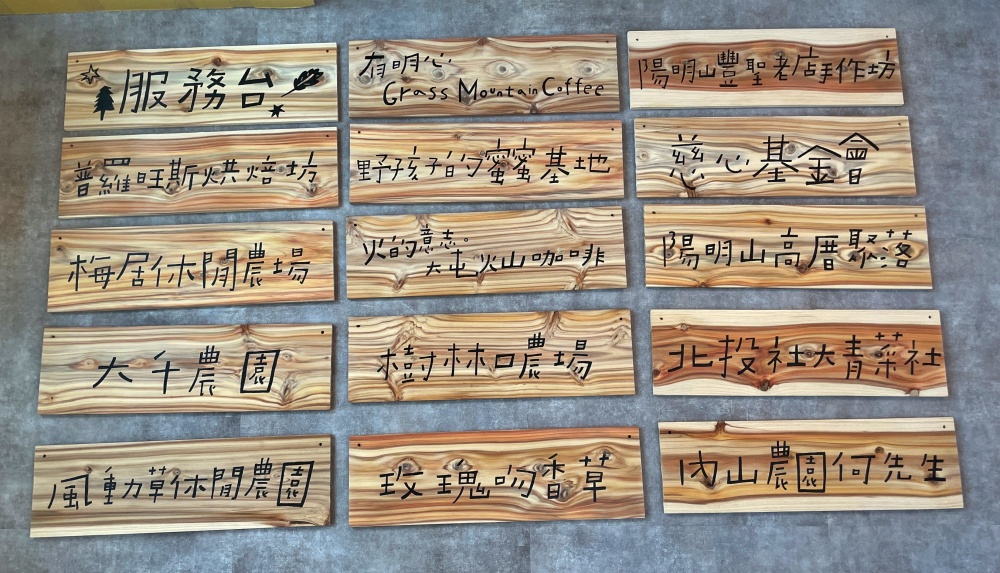 服務台
有明心
Grass Mountain Coffee
陽明山豐聖老店手作坊
普羅旺斯烘焙坊
野孩子的蜜蜜基地
慈心基金會
梅居休閒農場
火的意志。
大屯火山咖啡
陽明山高厝聚落
大千農園
樹林口農場
北投社大青菜社
風動草休閒農園
玫瑰吻香草
內山農園何先生